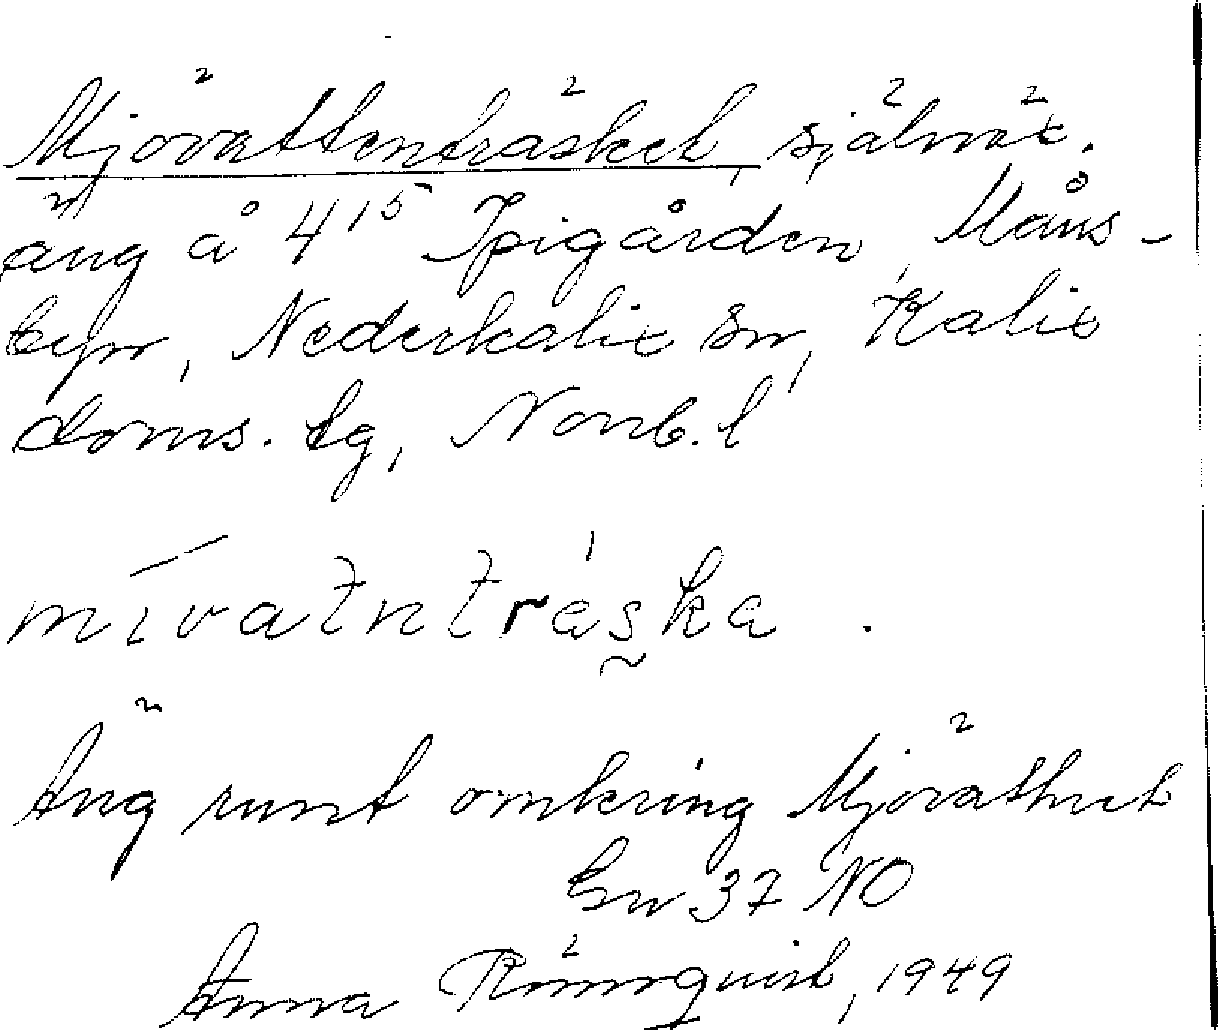 Mjövattenträsket, själväx.
äng å 4¹⁵ Ipigården, Måns-
byn, Nederkalix sn, Kalix
doms. lg, Norrb. l
mívatntrǽska .
Äng runt omkring Mjövattnet
37 NO
Anna Rönnquist, 1949